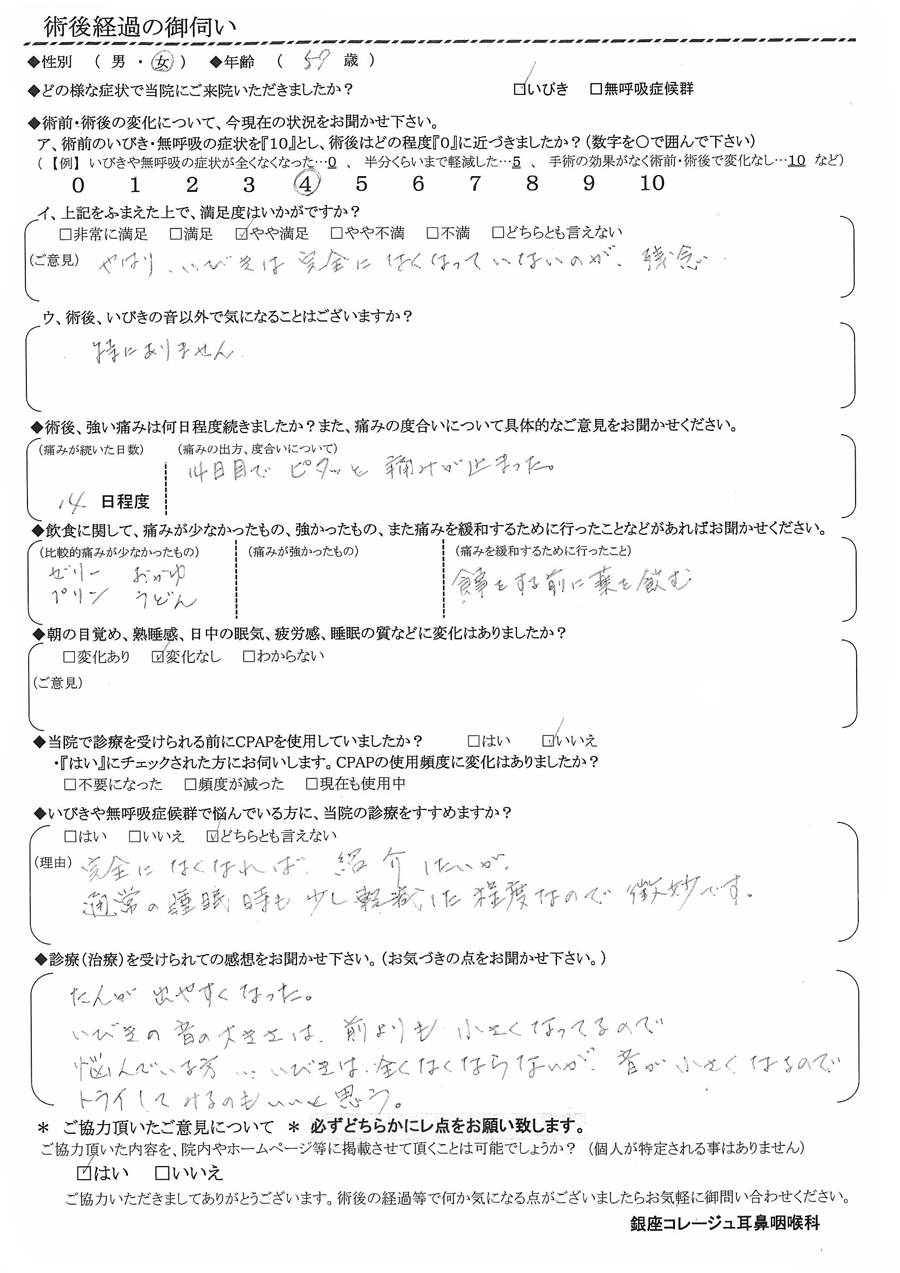 術後経過の御伺い
◆性別 ( 男 ・ 女 ) ◆年齢 ( 59 歳 )
◆どの様な症状で当院にご来院いただきましたか? ☑いびき □無呼吸症候群
◆術前・術後の変化について、今現在の状況をお聞かせ下さい。
ア、術前のいびき・無呼吸の症状を『10』とし、術後はどの程度『0』に近づきましたか?(数字を〇で囲んで下さい)
(【例】いびきや無呼吸の症状が全くなくなった…0 、 半分くらいまで軽減した…5 、 手術の効果がなく術前・術後で変化なし…10 など)
0 1 2 3 4 5 6 7 8 9 10
イ、上記をふまえた上で、満足度はいかがですか?
□非常に満足 □満足 ☑やや満足 □やや不満 □不満 □どちらとも言えない
(ご意見) やはり、いびきは完全になくなっていないのが、残念
ウ、術後、いびきの音以外で気になることはございますか?
特にありません
◆術後、強い痛みは何日程度続きましたか?また、痛みの度合いについて具体的なご意見をお聞かせください。
(痛みが続いた日数) (痛みの出方、度合いについて)
14日目で ピタッと 痛みが止まった。
14 日程度
◆飲食に関して、痛みが少なかったもの、強かったもの、また痛みを緩和するために行ったことなどがあればお聞かせください。
(比較的痛みが少なかったもの) (痛みが強かったもの) (痛みを緩和するために行ったこと)
ゼリー おかゆ 食事をする前に薬を飲む
プリン うどん
◆朝の目覚め、熟睡感、日中の眠気、疲労感、睡眠の質などに変化はありましたか?
□変化あり ☑変化なし □わからない
(ご意見)
◆当院で診療を受けられる前にCPAPを使用していましたか? □はい ☑いいえ
・『はい』にチェックされた方にお伺いします。CPAPの使用頻度に変化はありましたか?
□不要になった □頻度が減った □現在も使用中
◆いびきや無呼吸症候群で悩んでいる方に、当院の診療をすすめますか?
□はい □いいえ ☑どちらとも言えない
(理由) 完全になくなれば、紹介したいが、
通常の睡眠時も少し軽減した程度なので微妙です。
◆診療(治療)を受けられての感想をお聞かせ下さい。(お気づきの点をお聞かせ下さい。)
たんが出やすくなった。
いびきの音の大きさは、前よりも小さくなってるので
悩んでいる方…いびきは、全くなくならないが、音が小さくなるので
トライしてみるのもいいと思う。
＊ ご協力頂いたご意見について ＊ 必ずどちらかにレ点をお願い致します。
ご協力頂いた内容を、院内やホームページ等に掲載させて頂くことは可能でしょうか? (個人が特定される事はありません)
☑はい □いいえ
ご協力いただきましてありがとうございます。術後の経過等で何か気になる点がございましたらお気軽に御問い合わせください。
銀座コレージュ耳鼻咽喉科